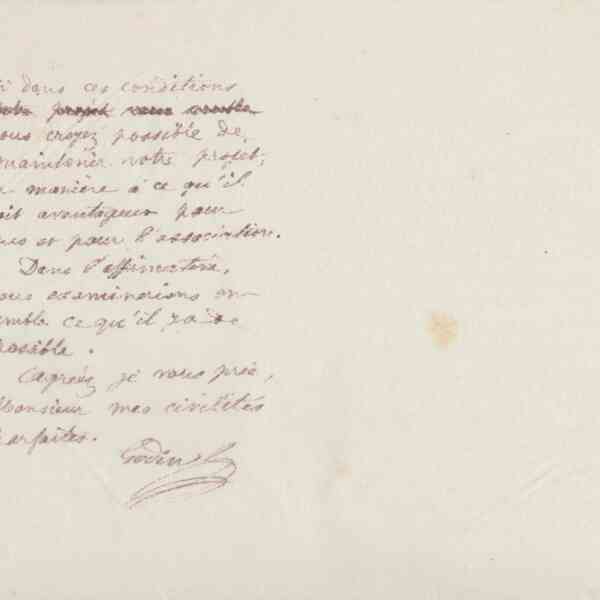 dans ces conditions
projet vous semble
vous croyez possible de
maintenir votre projet,
manière à ce qu'il
soit avantageux pour
vous et pour l'association.
Dans l'affirmative,
nous examinerions en-
semble ce qu'il y a de
possible.
Agréez je vous prie,
Monsieur mes civilités
parfaites.
Godin